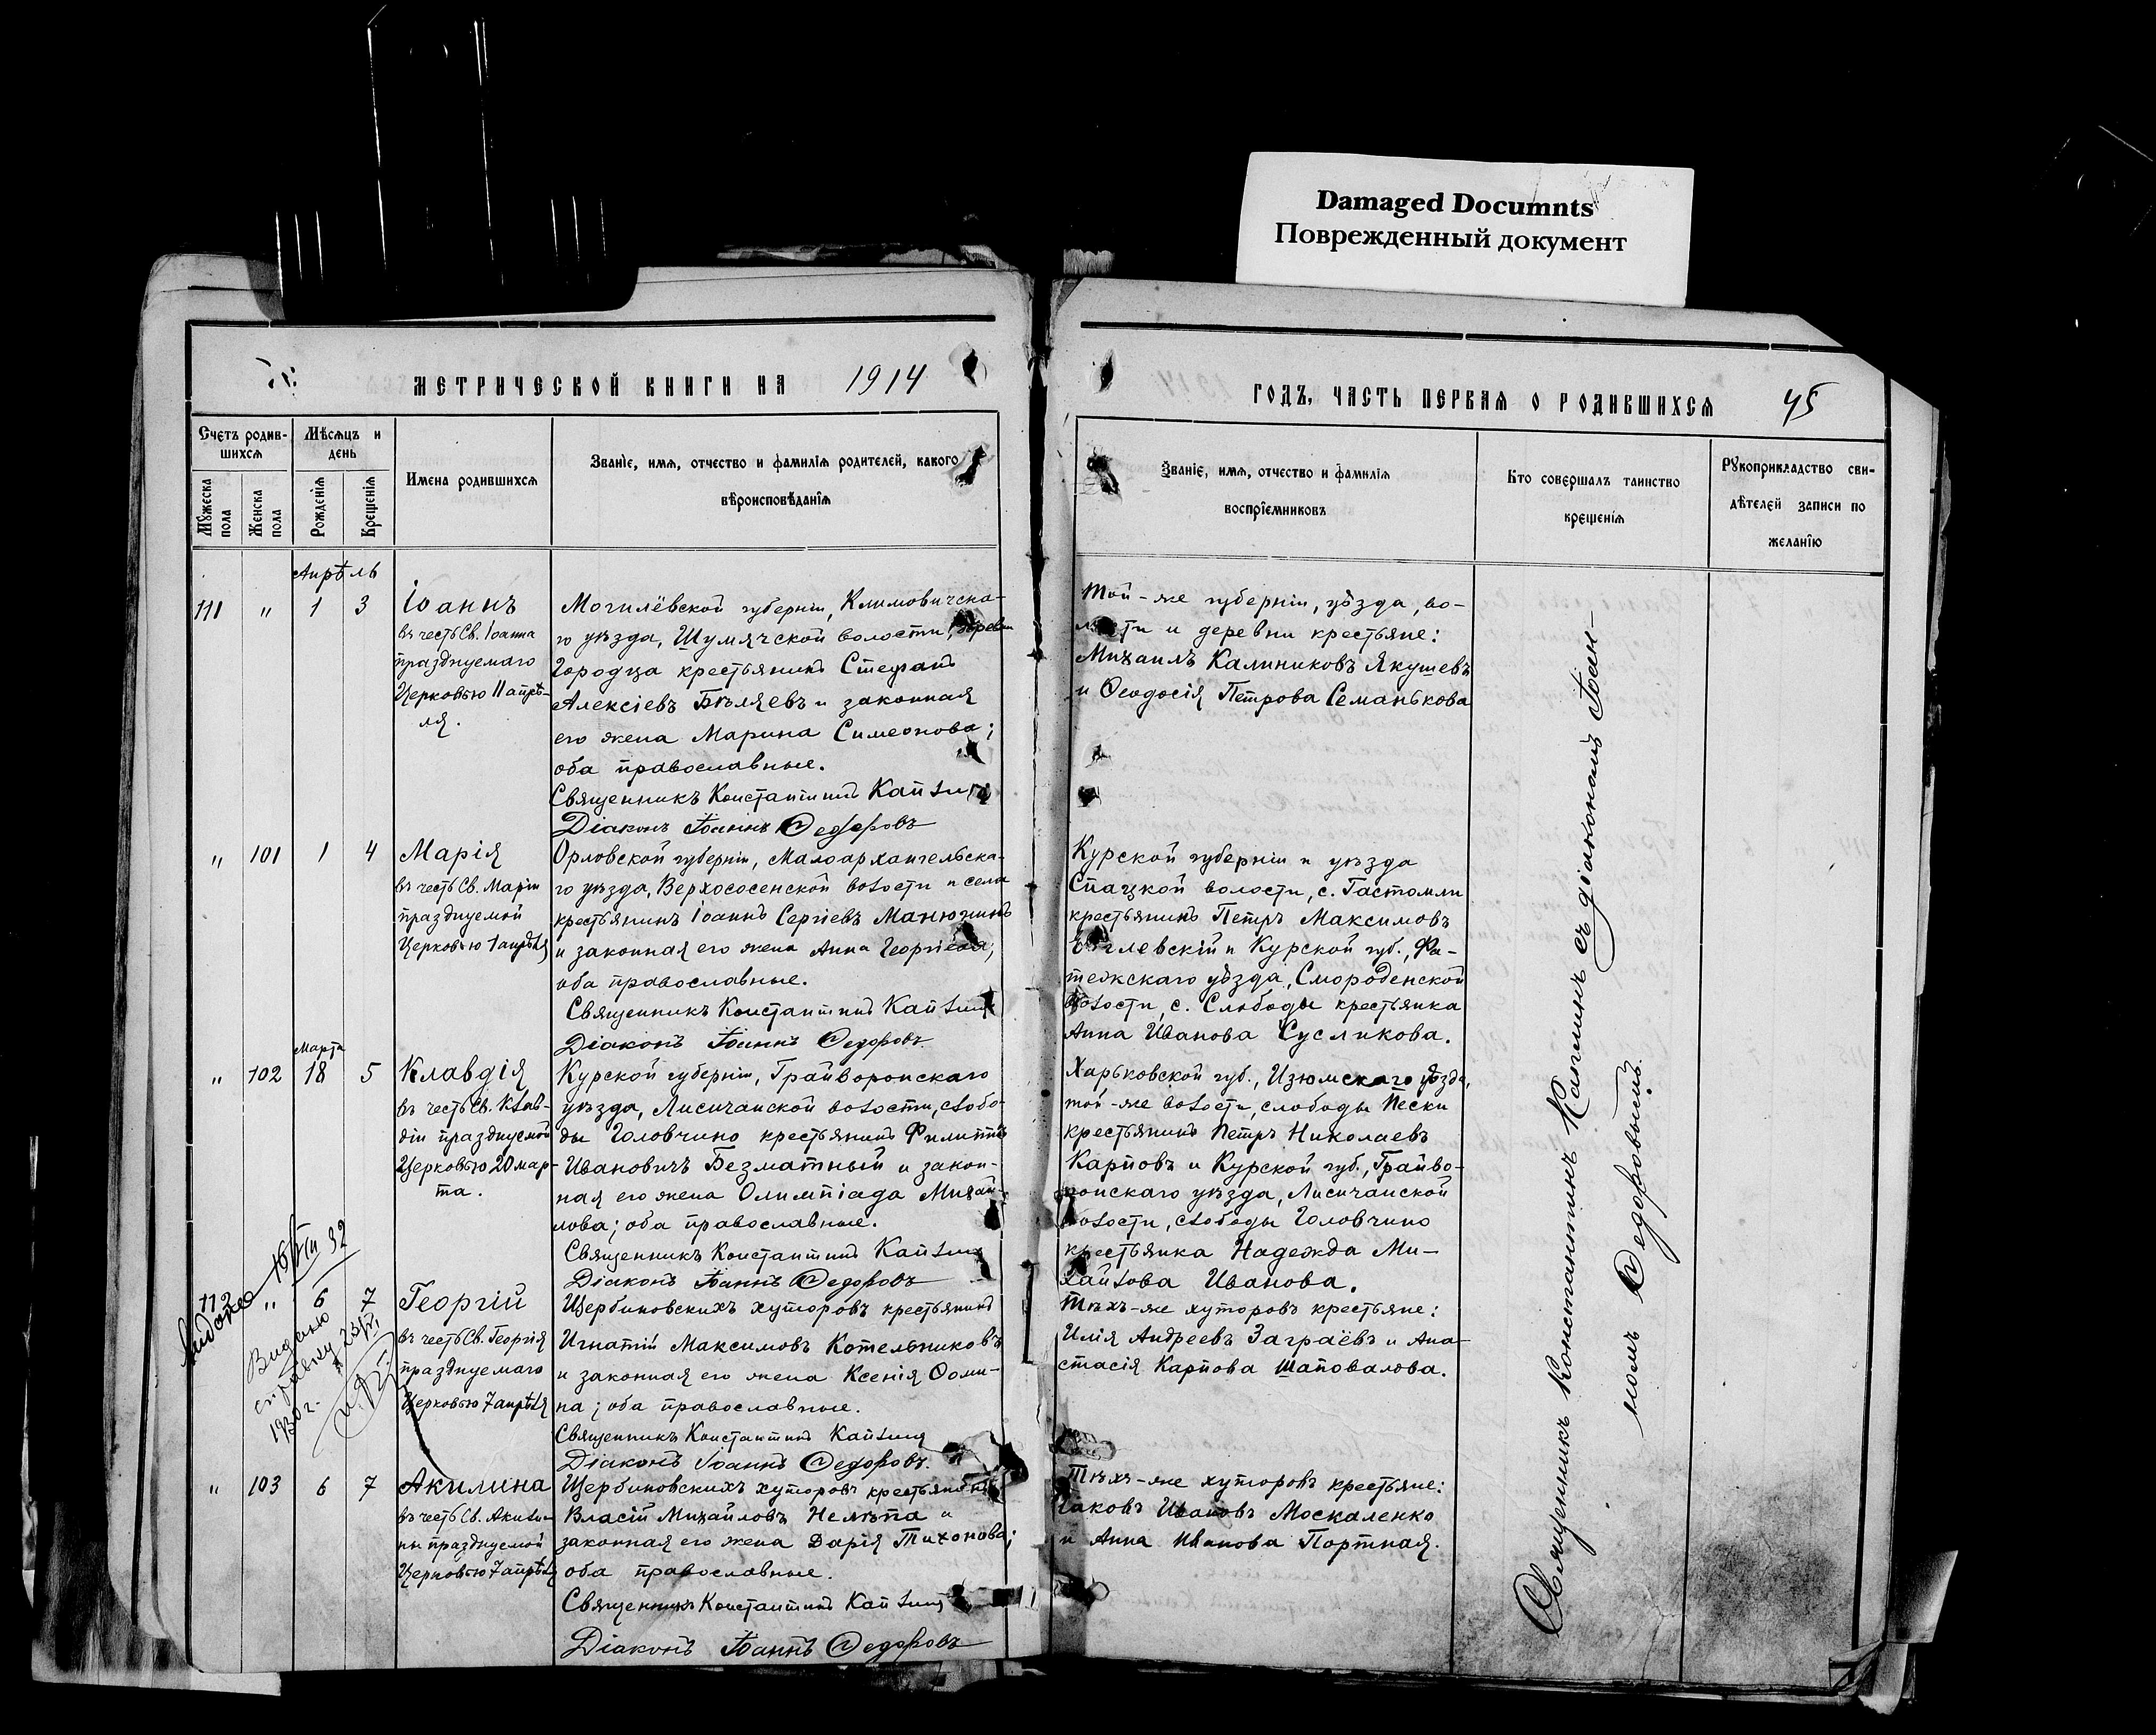 Damaged Documnts
Поврежденный документ
МЕТРИЧЕСКОЙ КНИГИ НА 1914
Счетъ родив-
шихся
Мѣсяцъ и
день
Мужеска
пола
Женска
пола
Рожденія
Крещенія
Имена родившихся
Званіе, имя, отчество и фамилія родителей, какого
вѣроисповѣданія
Апрѣль
111 " 1 3
Іоаннъ
въ честь Св. Іоанна
празднуемаго
Церковью 11 апрѣ-
ля.
Могилёвской губерніи, Климовичска-
го уѣзда, Шумячской волости, деревни
Городца крестьянинъ Стефанъ
Алексіевъ Бѣляевъ и законная
его жена Марина Симеонова;
оба православные.
Священникъ Константинъ Каплинъ
Діаконъ Іоаннъ Ѳедоровъ
" 101 1 4
Марія
въ честь Св. Маріи
празднуемой
Церковью 1 апрѣля
Орловской губерніи, Малоархангельска-
го уѣзда, Верхососенской волости и села
крестьянинъ Іоаннъ Сергіевъ Манюхинъ
и законная его жена Анна Георгіева;
оба православные.
Священникъ Константинъ Каплинъ
Діаконъ Іоаннъ Ѳедоровъ
Марта
" 102 18 5
Клавдія
въ честь Св. Клав-
діи празднуемой
Церковью 20 мар-
та.
Курской губерніи, Грайворонскаго
уѣзда, Лисичанской волости, слобо-
ды Головчино крестьянинъ Филиппъ
Ивановичъ Безматный и закон-
ная его жена Олимпіада Михай-
лова; оба православные.
Священникъ Константинъ Каплинъ
Діаконъ Іоаннъ Ѳедоровъ
112 " 6 7
Георгій
въ честь Св. Георгія
празднуемаго
Церковью 7 апрѣля
Щербиновскихъ хуторовъ крестьянинъ
Игнатій Максимовъ Котельниковъ
и законная его жена Ксенія Ѳоми-
на; оба православные.
Священникъ Константинъ Каплинъ
Діаконъ Іоаннъ Ѳедоровъ.
Выдано
справку
1930 г.
" 103 6 7
Акилина
въ честь Св. Акили-
ны празднуемой
Церковью 7 апрѣля
Щербиновскихъ хуторовъ крестьянинъ
Власій Михайловъ Нелѣпа и
законная его жена Дарія Тихонова;
оба православные.
Священникъ Константинъ Каплинъ
Діаконъ Іоаннъ Ѳедоровъ
ГОДЪ, ЧАСТЬ ПЕРВАЯ О РОДИВШИХСЯ 45
Званіе, имя, отчество и фамилія
воспріемниковъ
Кто совершалъ таинство
крещенія
Рукоприкладство сви-
дѣтелей записи по
желанію
Той-же губерніи, уѣзда, во-
лости и деревни крестьяне:
Михаилъ Калиниковъ Якушевъ
и Ѳеодосія Петрова Семанькова
Курской губерніи и уѣзда
Спацкой волости, с. Гастомли
крестьянинъ Петръ Максимовъ
и Курской губ., Фа-
тежскаго уѣзда, Смороденской
волости, с. Слободы крестьянка
Анна Иванова Сусликова.
Харьковской губ., Изюмскаго уѣзда,
той-же волости, слободы Пески
крестьянинъ Петръ Николаевъ
Карповъ и Курской губ., Грайво-
ронскаго уѣзда, Лисичанской
волости, слободы Головчино
крестьянка Надежда Ми-
хайлова Иванова.
Тѣхъ-же хуторовъ крестьяне:
Илія Андреевъ Заграёвъ и Ана-
стасія Карпова Шаповалова.
Тѣхъ-же хуторовъ крестьяне:
Іаковъ Ивановъ Москаленко
и Анна Иванова Портная.
Священникъ Константинъ Каплинъ съ діакономъ Іоан-
номъ Ѳедоровымъ.